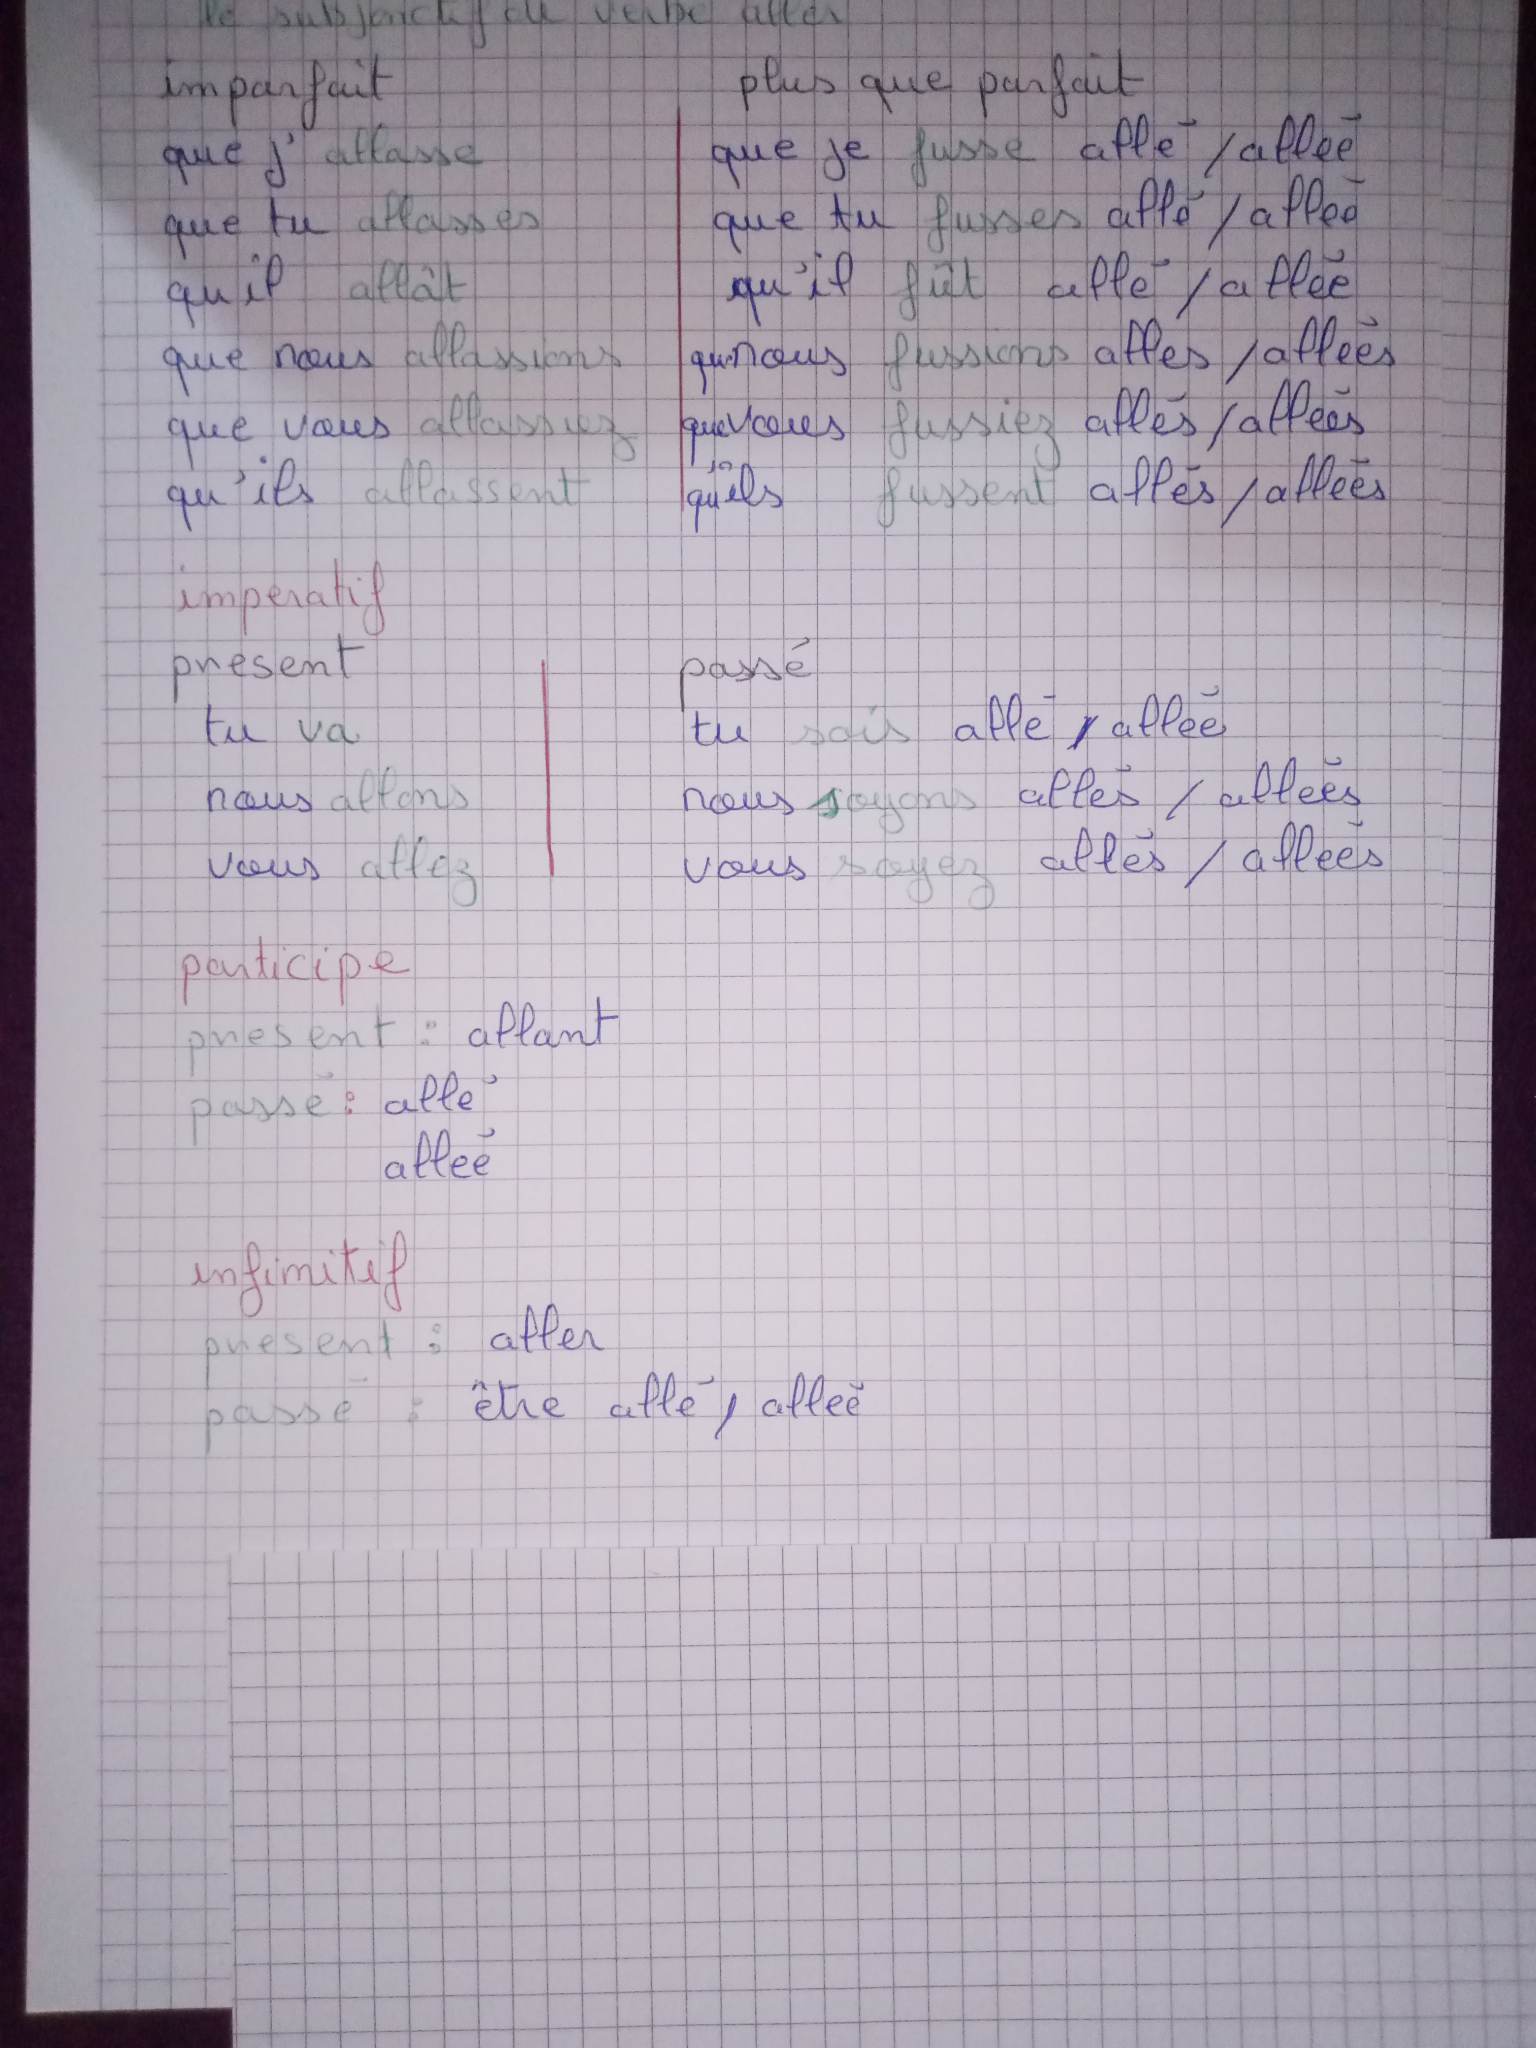 le subjonctif du verbe aller
imparfait plus que parfait
que j' allasse que je fusse allé / alleé
que tu allasses que tu fusses allé / alleé
qu il allât qu'il fût allé / alleé
que nous allassions que nous fussions alles / alleés
que vous allassiez que vous fussiez allés / alleés
qu'ils allassent qu'ils fussent allés / alleés
imperatif
present passé
tu va tu sois allé / alleé
nous allons nous soyons allés / alleés
vous allez vous soyez allés / alleés
participe
present : allant
passé : allé
alleé
infinitif
present : aller
passé : être allé / alleé